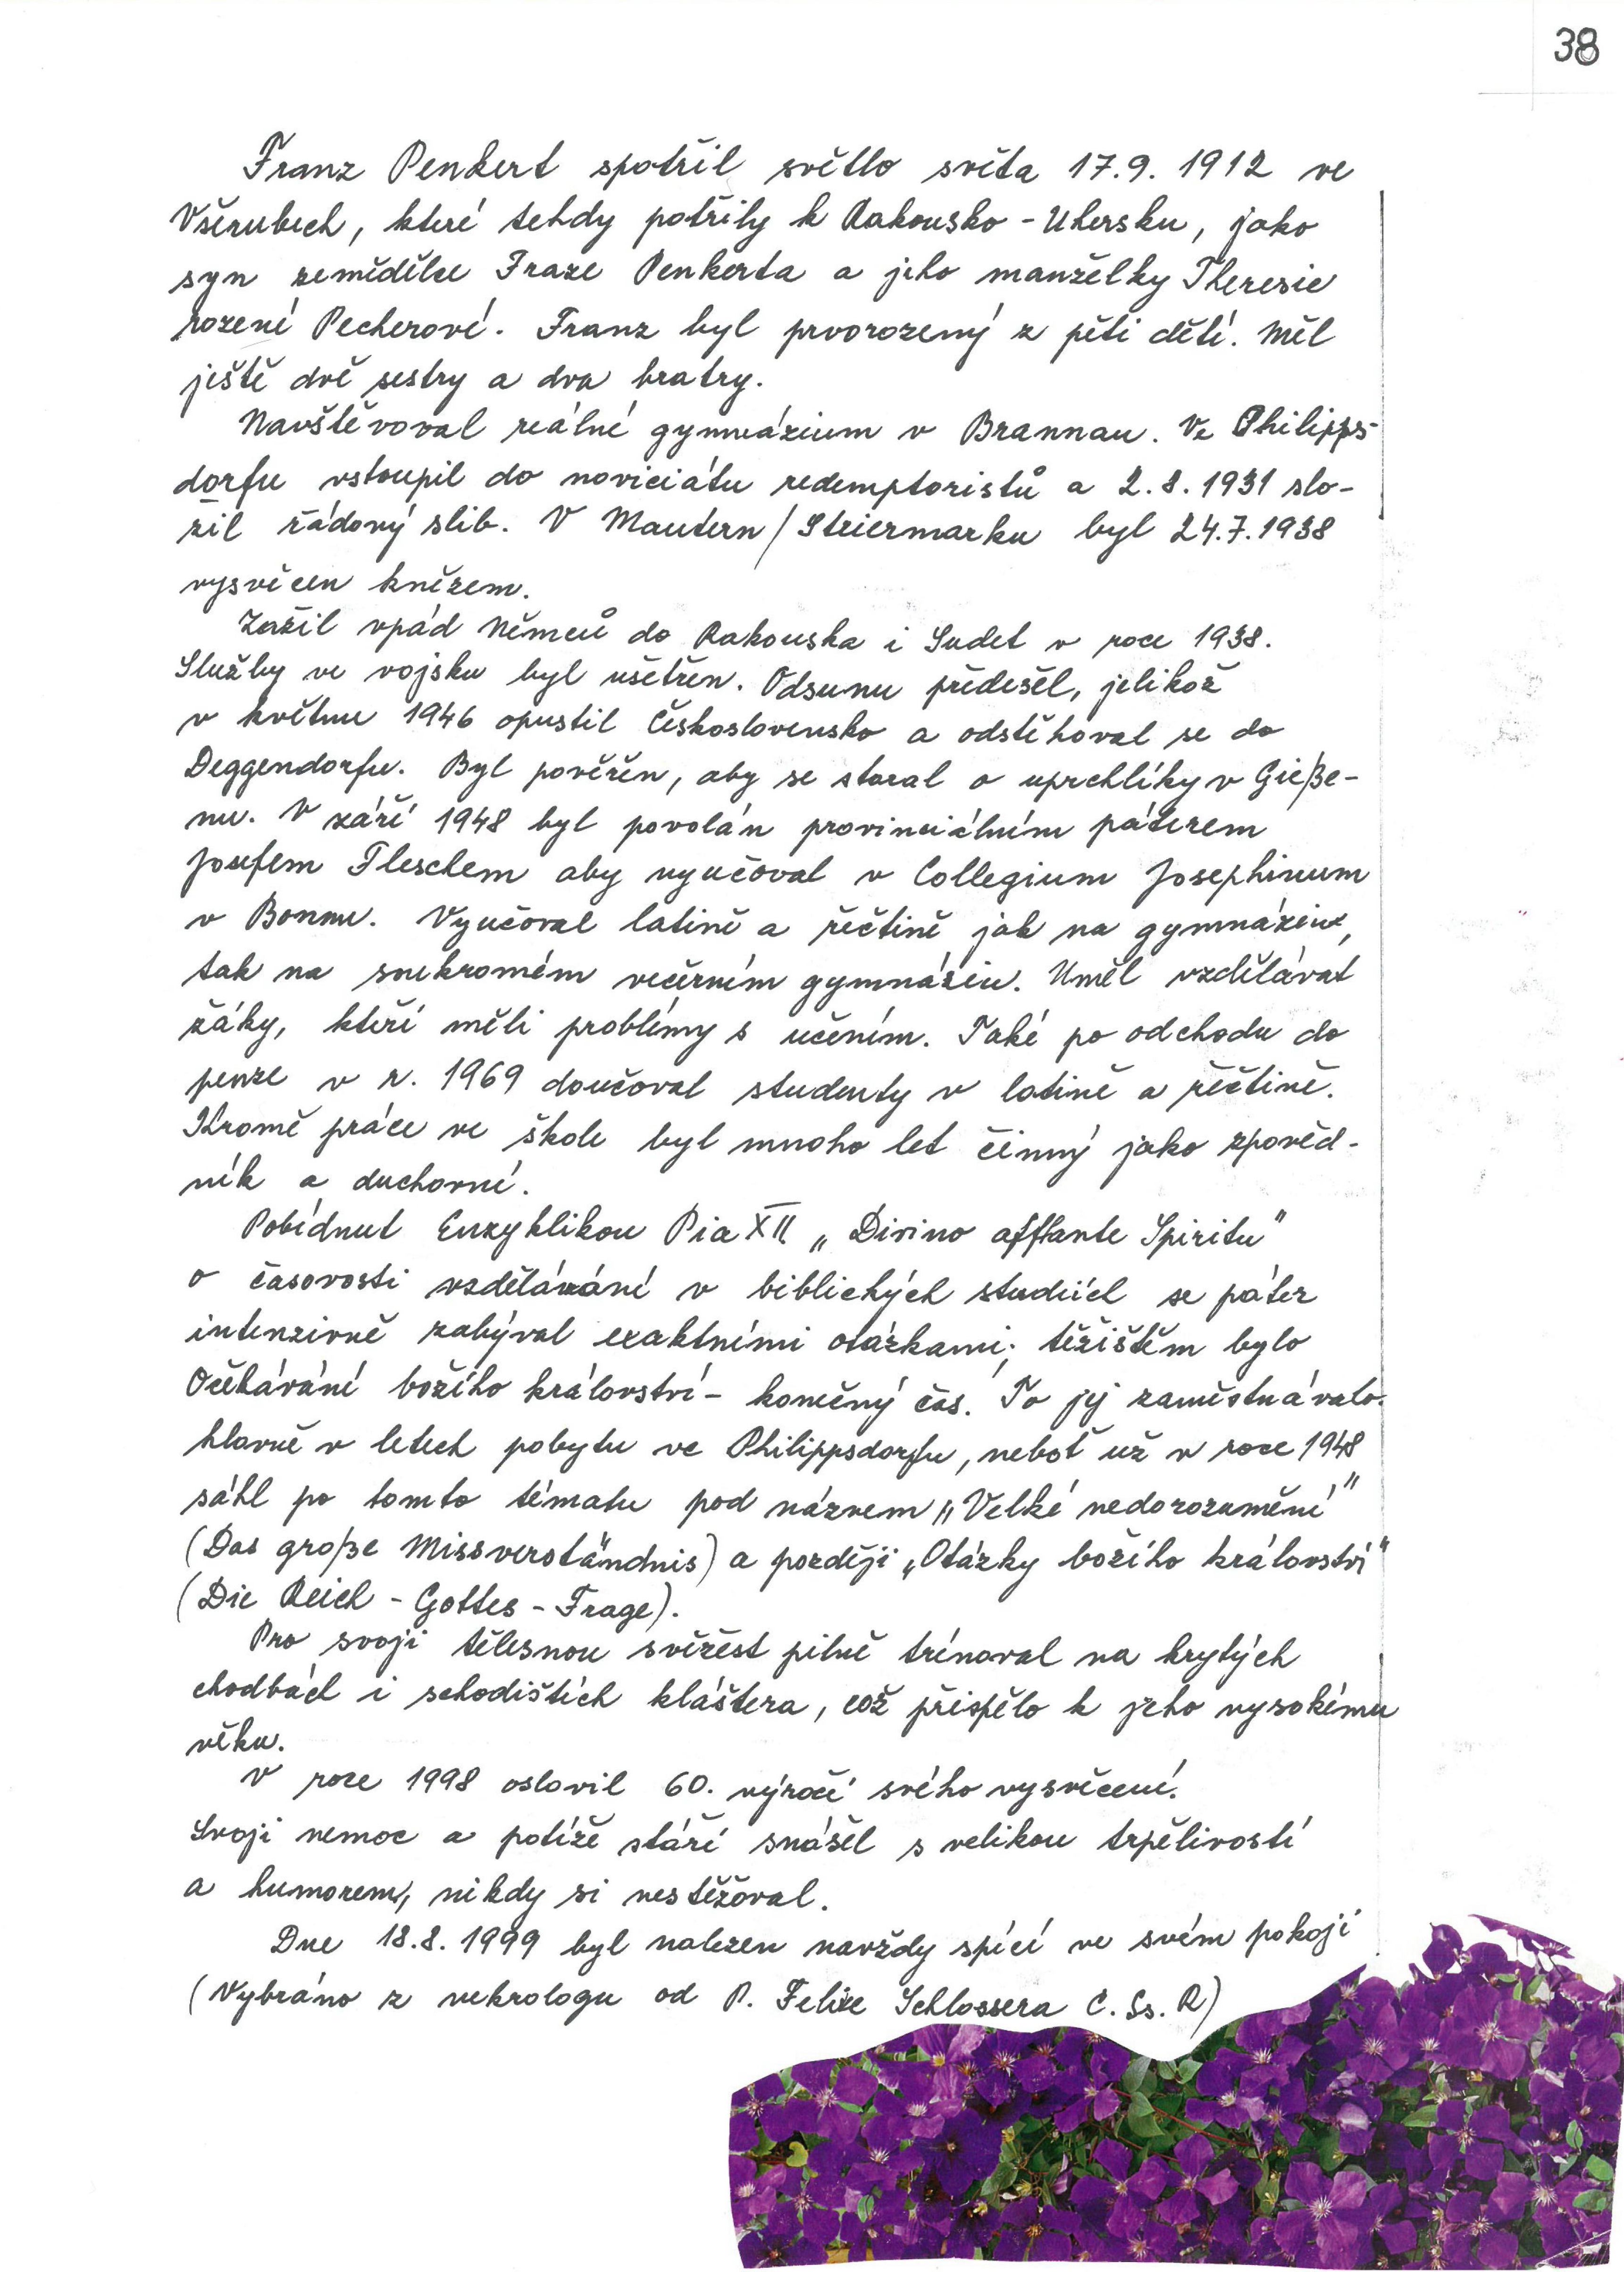 38
Franz Penkert spatřil světlo světa 17.9. 1912 ve
Všerubech, které tehdy patřily k Rakousko - Uhersku, jako
syn zemědělce Fraze Penkerta a jeho manželky Theresie
rozené Pecherové. Franz byl prvorozený z pěti dětí. Měl
ještě dvě sestry a dva bratry.
Navštěvoval reálné gymnázium v Brannau. Ve Philipps-
dorfu vstoupil do noviciátu redemptoristů a 2.8.1931 slo-
žil řádový slib. V Mautern/Steiermarku byl 24.7.1938
vysvěcen knězem.
Zažil vpád Němců do Rakouska i Sudet v roce 1938.
Služby ve vojsku byl ušetřen. Odsunu předešel, jelikož
v květnu 1946 opustil Československo a odstěhoval se do
Deggendorfu. Byl pověřěn, aby se staral o uprchlíky v Gieße-
nu. V září 1948 byl povolán provinciálním páterem
Josefem Fleschem aby vyučoval v Collegium Josephinum
v Bonnu. Vyučoval latině a řečtině jak na gymnáziu,
tak na soukromém večerním gymnáziu. Uměl vzdělávat
žáky, kteří měli problémy s učením. Také po odchodu do
penze v r. 1969 doučoval studenty v latině a řečtině.
Kromě práce ve škole byl mnoho let činný jako zpověd-
ník a duchovní.
Pobídnut Enzyklikou Pia XII „Divino afflante Spiritu"
o časovosti vzdělávání v biblických studiích se páter
intenzivně zabýval exaktními otázkami; těžištěm bylo
Očekávání božího království - konečný čas. To jej zaměstnávalo
hlavně v letech pobytu ve Philippsdorfu, neboť už v roce 1948
sáhl po tomto tématu pod názvem „Velké nedorozumění"
(Das große Missverständnis) a později „Otázky božího království"
(Die Reich - Gottes - Frage).
Pro svoji tělesnou svěžest pilně trénoval na krytých
chodbách i schodištích kláštera, což přispělo k jeho vysokému
věku.
V roce 1998 oslavil 60. výročí svého vysvěcení.
Svoji nemoc a potíže stáří snášel s velikou trpělivostí
a humorem, nikdy si nestěžoval.
Dne 18.8.1999 byl nalezen navždy spící ve svém pokoji
(Vybráno z nekrologu od P. Felixe Schlossera C. Ss. R)